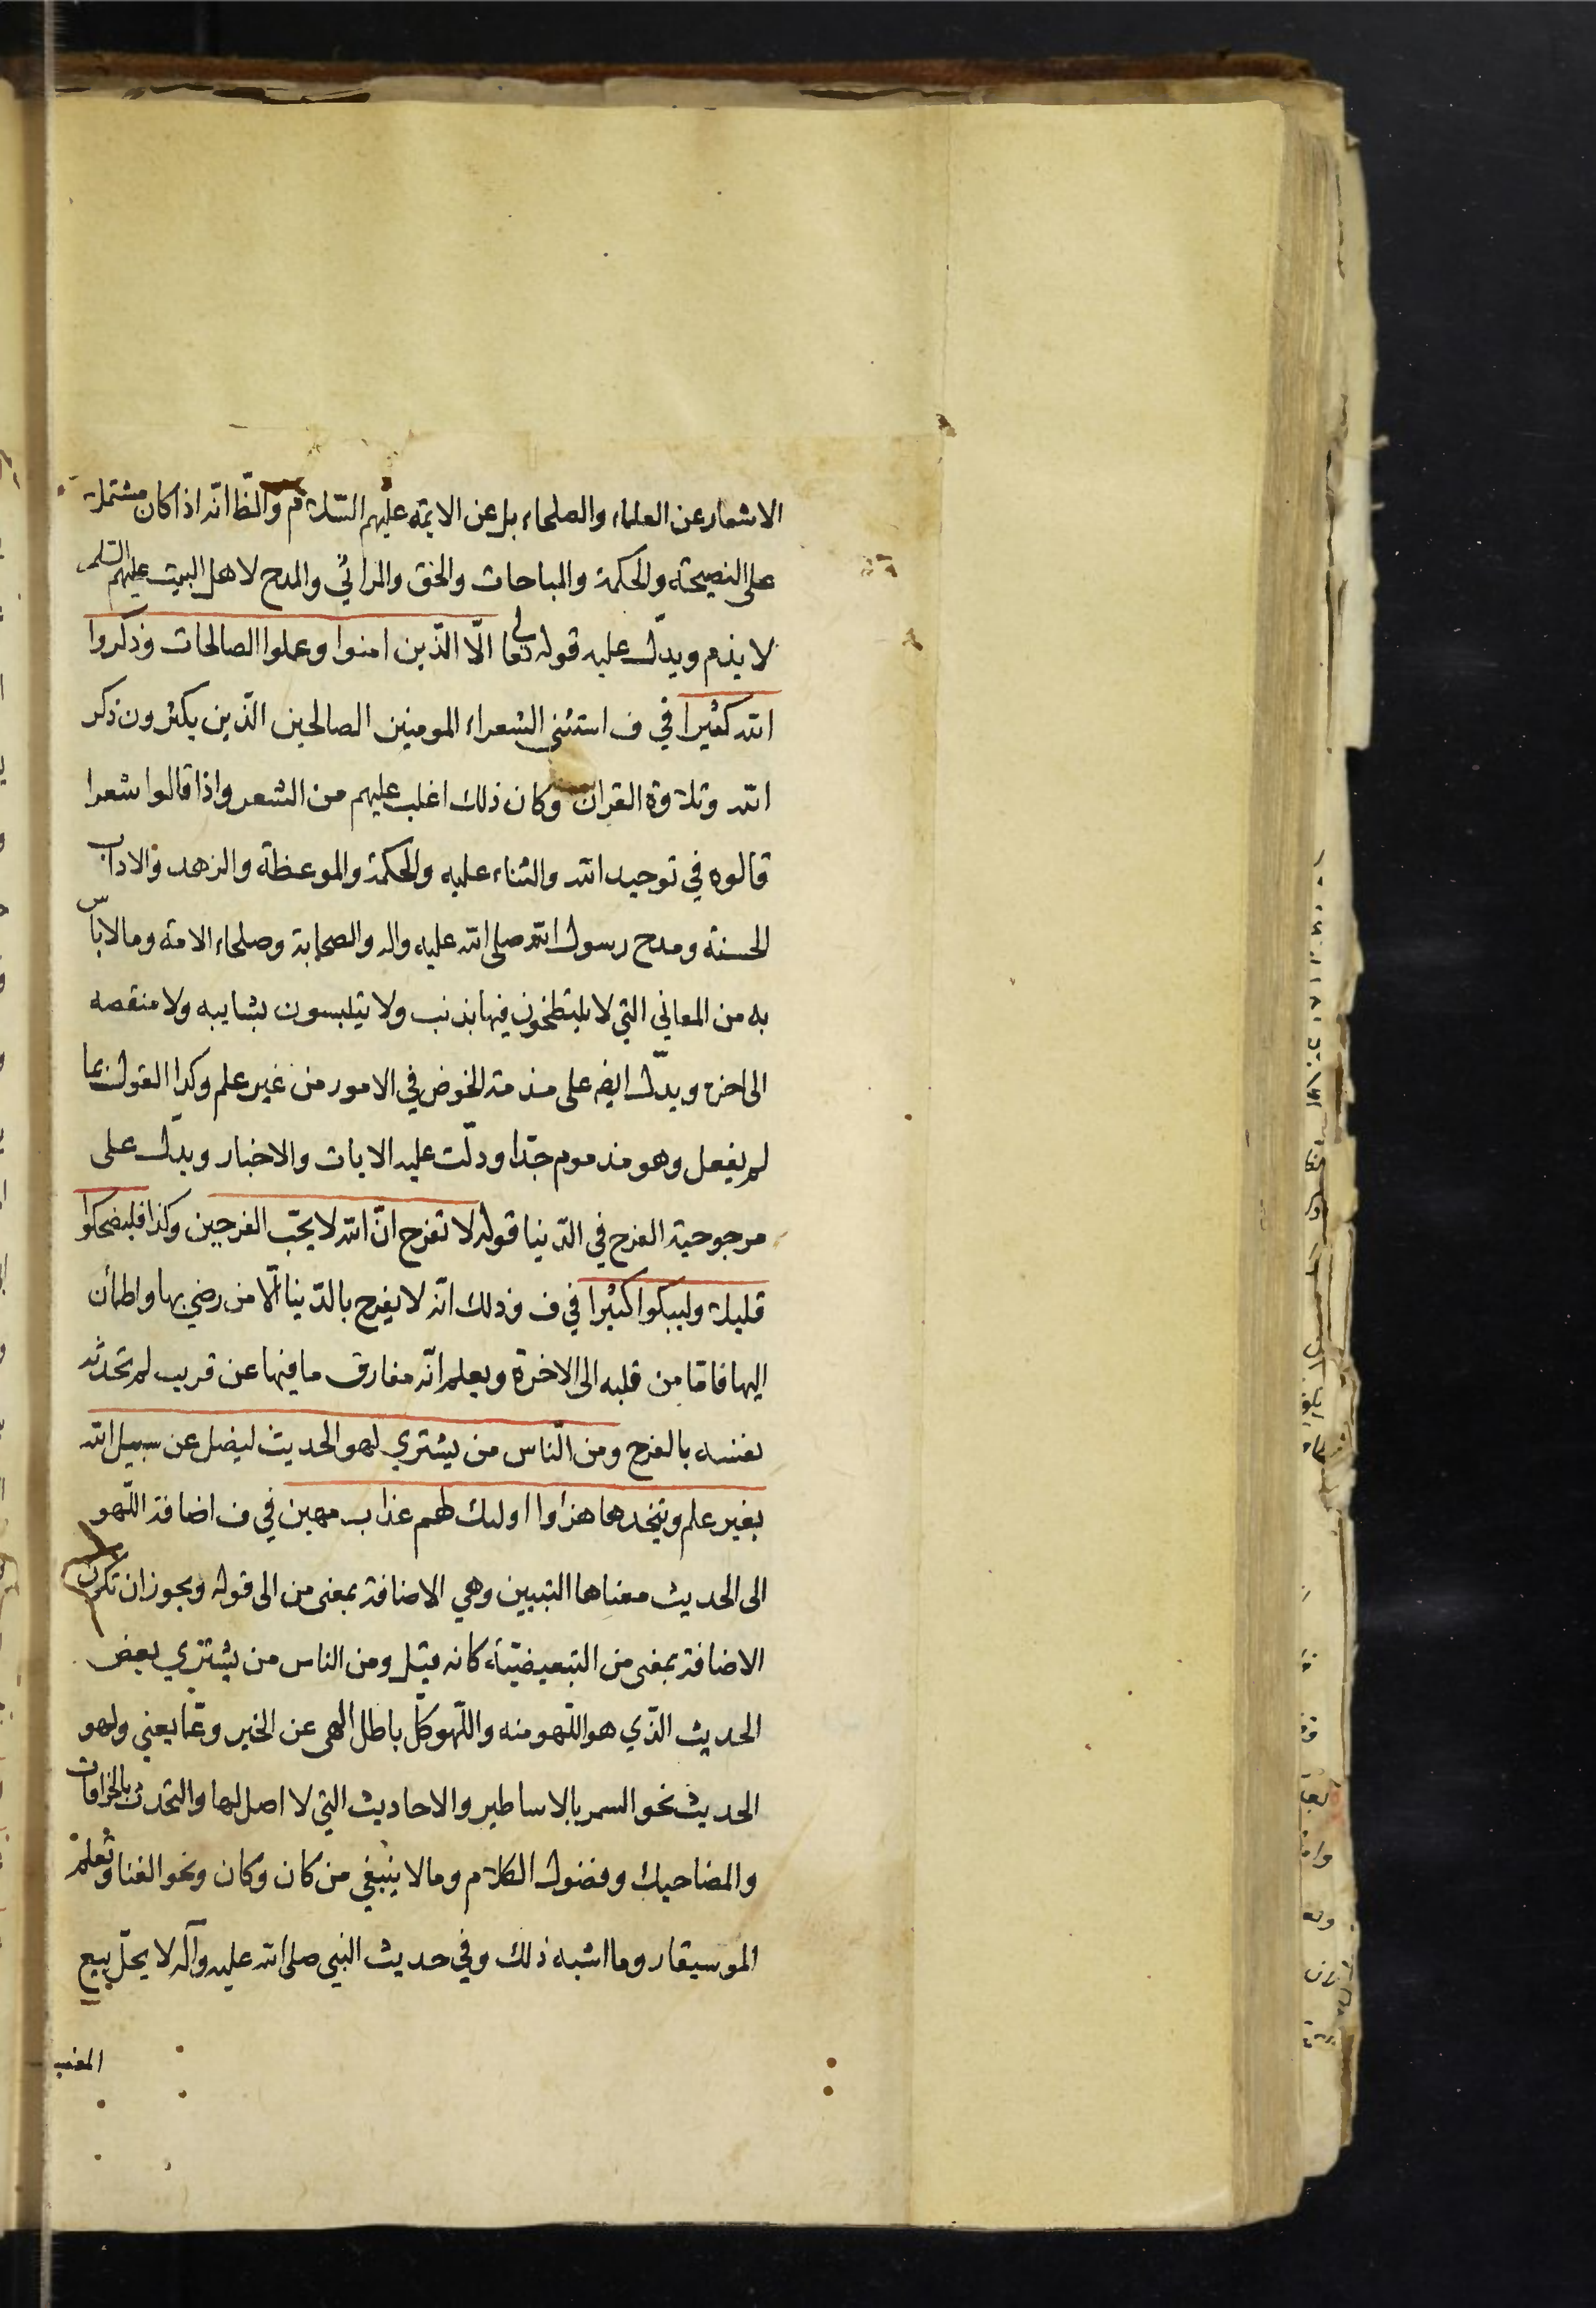 الاشعار عن العلماء والصلحاء بل عن الايمة عليهم السّلام والظ انّه اذا كان مشتملة
على النصيحة والحكمة والمباحات والحق والمراثي والمدح لاهل البيت عليهم السلم
لا يذم ويدلّ عليه قوله تعالى الّا الذّين امنوا وعملوا الصالحات وذكروا
الله كثيرا في ف استثنى الشعراء المومنين الصالحين الذّين يكثرون ذكر
الله وتلاوة القران وكان ذلك اغلب عليهم من الشعر واذا قالوا شعرا
قالوه في توحيد الله والثناء عليه والحكمة والموعظة والزهد والاداب
الحسنة ومدح رسول الله صلى الله عليه واله والصحابة وصلحاء الامة ومالا باس
به من المعاني التي لا يلتطخون فيها بذنب ولا يتلبسون بشايبه ولا منقصه
الى اخره ويدلّ ايضه على مذمته الخوض في الامور من غير علم وكذا القول بما
لم يفعل وهو مذموم جدّا ودلّت عليه الايات والاخبار ويدلّ على
مرجوحية الفرح في الدّنيا قوله لا تفرح انّ الله لا يحّب الفرحين وكذا فليضحكوا
قليلا وليبكوا كثيرا في ف وذلك انّه لا يفرح بالدّنيا الّا من رضي بها واطمأن
اليها فامّا من قلبه الى الاخرة ويعلم انّه مفارق ما فيها عن قريب لم تحدثه
نفسه بالفرح ومن النّاس من يشتري لهو الحديث ليضل عن سبيل الله
بغير علم ويتخذها هزأوا اولىك لهم عذاب مهين في ف اضافة اللّهو
الى الحديث معناها التبيين وهي الاضافة بمعنى من الى قوله ويجوز ان تكون
الاضافة بمعنى من التبعيضيّة كانه قيل ومن الناس من يشتري بعض
الحديث الذّي هو اللّهو منه واللّهو كلّ باطل الهى عن الخير وعمّا يعني ولهو
الحديث نحو السمر بالاساطير والاحاديث التي لا اصل لها والتحدث بالخرافات
والمضاحيك وفضول الكلام ومالا ينبغي من كان وكان ونحو الغنا وتعلم
الموسيقار وما اشبه ذلك وفي حديث النبي صلى الله عليه وآله لا يحلّ بيع
المغنيـ